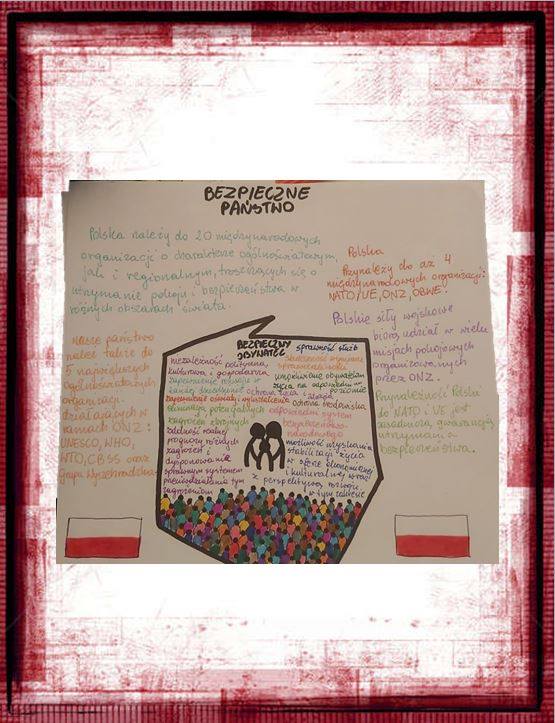 BEZPIECZNE
PAŃSTWO
Polska należy do 20 międzynarodowych
organizacji o charakterze ogólnoświatowym,
jak i regionalnym, troszczących się o
utrzymanie pokoju i bezpieczeństwa w
różnych obszarach świata
Polska
Przynależy do aż 4
międzynarodowych organizacji:
NATO, UE, ONZ, OBWE.
Polskie siły wojskowe
biorą udział w wielu
misjach pokojowych
organizowanych
przez ONZ.
Przynależność Polski
do NATO i UE jest
gwarancją
utrzymania
bezpieczeństwa.
Nasze państwo
należy także do
5 największych
ogólnoświatowych
organizacji
działających w
ramach ONZ:
UNESCO, WHO,
WTO, CBSS oraz
Grupa Wyszehradzka
BEZPIECZNY
OBYWATEL
niezależność polityczna,
kulturowa i gospodarcza
zapewnienie
ochrona życia i zdrowia
zapewnienie oświaty i wykształcenia
eliminacja potencjalnych
zagrożeń zbrojnych
zdolność realnej
prognozy różnych
zagrożeń i
dysponowanie
sprawnym systemem
przeciwdziałania tym
zagrożeniom
sprawność służb
skuteczność wymiaru
sprawiedliwości
życia na odpowiednim
poziomie
ochrona środowiska
odpowiedni system
bezpieczeństwa
narodowego
możliwość uzyskania
stabilizacji życia
w sferze ekonomicznej
i kulturalnej wraz
z perspektywą rozwoju
w tym zakresie